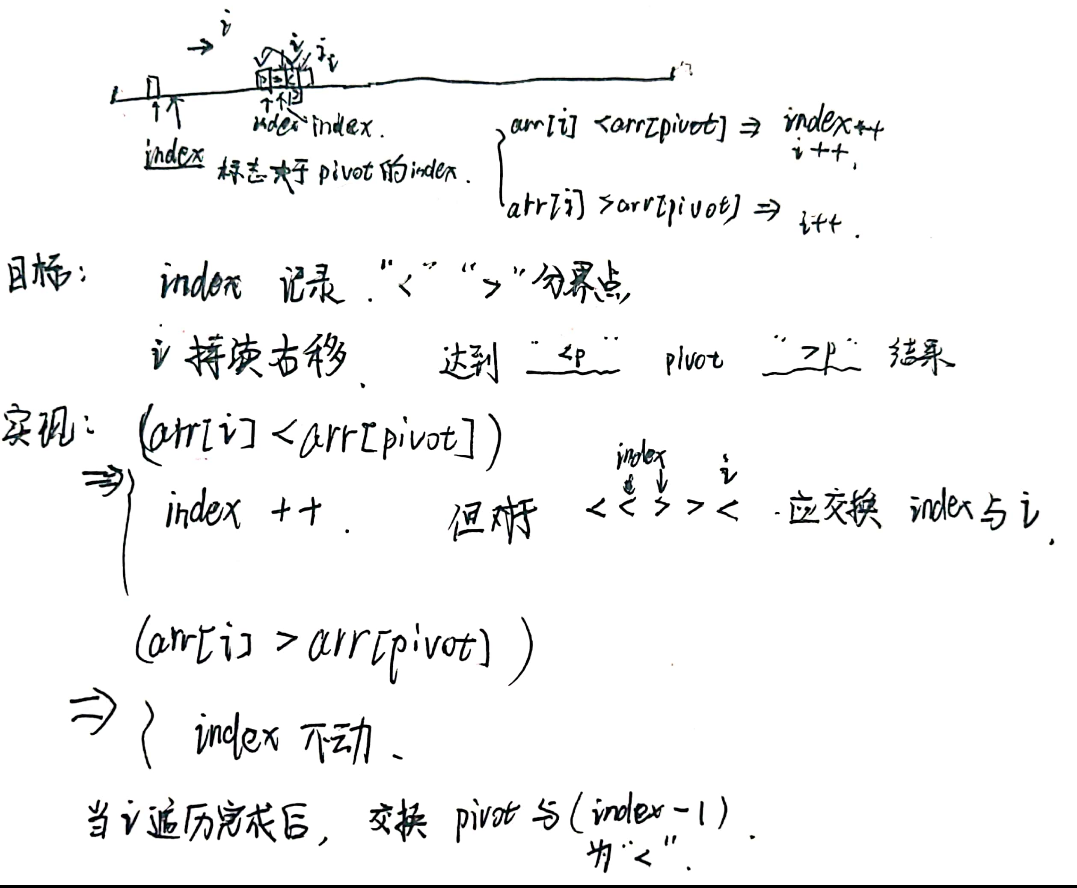 → i
i i i
index index.
index 标志大于pivot的index.
arr[i] < arr[pivot] ⇒ index++
i++.
arr[i] > arr[pivot] ⇒ i++.
目标: index 记录 "<" ">" 分界点,
i 持续右移. 达到 "<p" pivot ">p" 结果
实现: (arr[i] < arr[pivot])
⇒ { index ++. 但对于 < < > > < . 应交换 index与i.
index i
(arr[i] > arr[pivot])
⇒ { index 不动.
当i遍历完成后, 交换 pivot 与(index-1).
为"<".